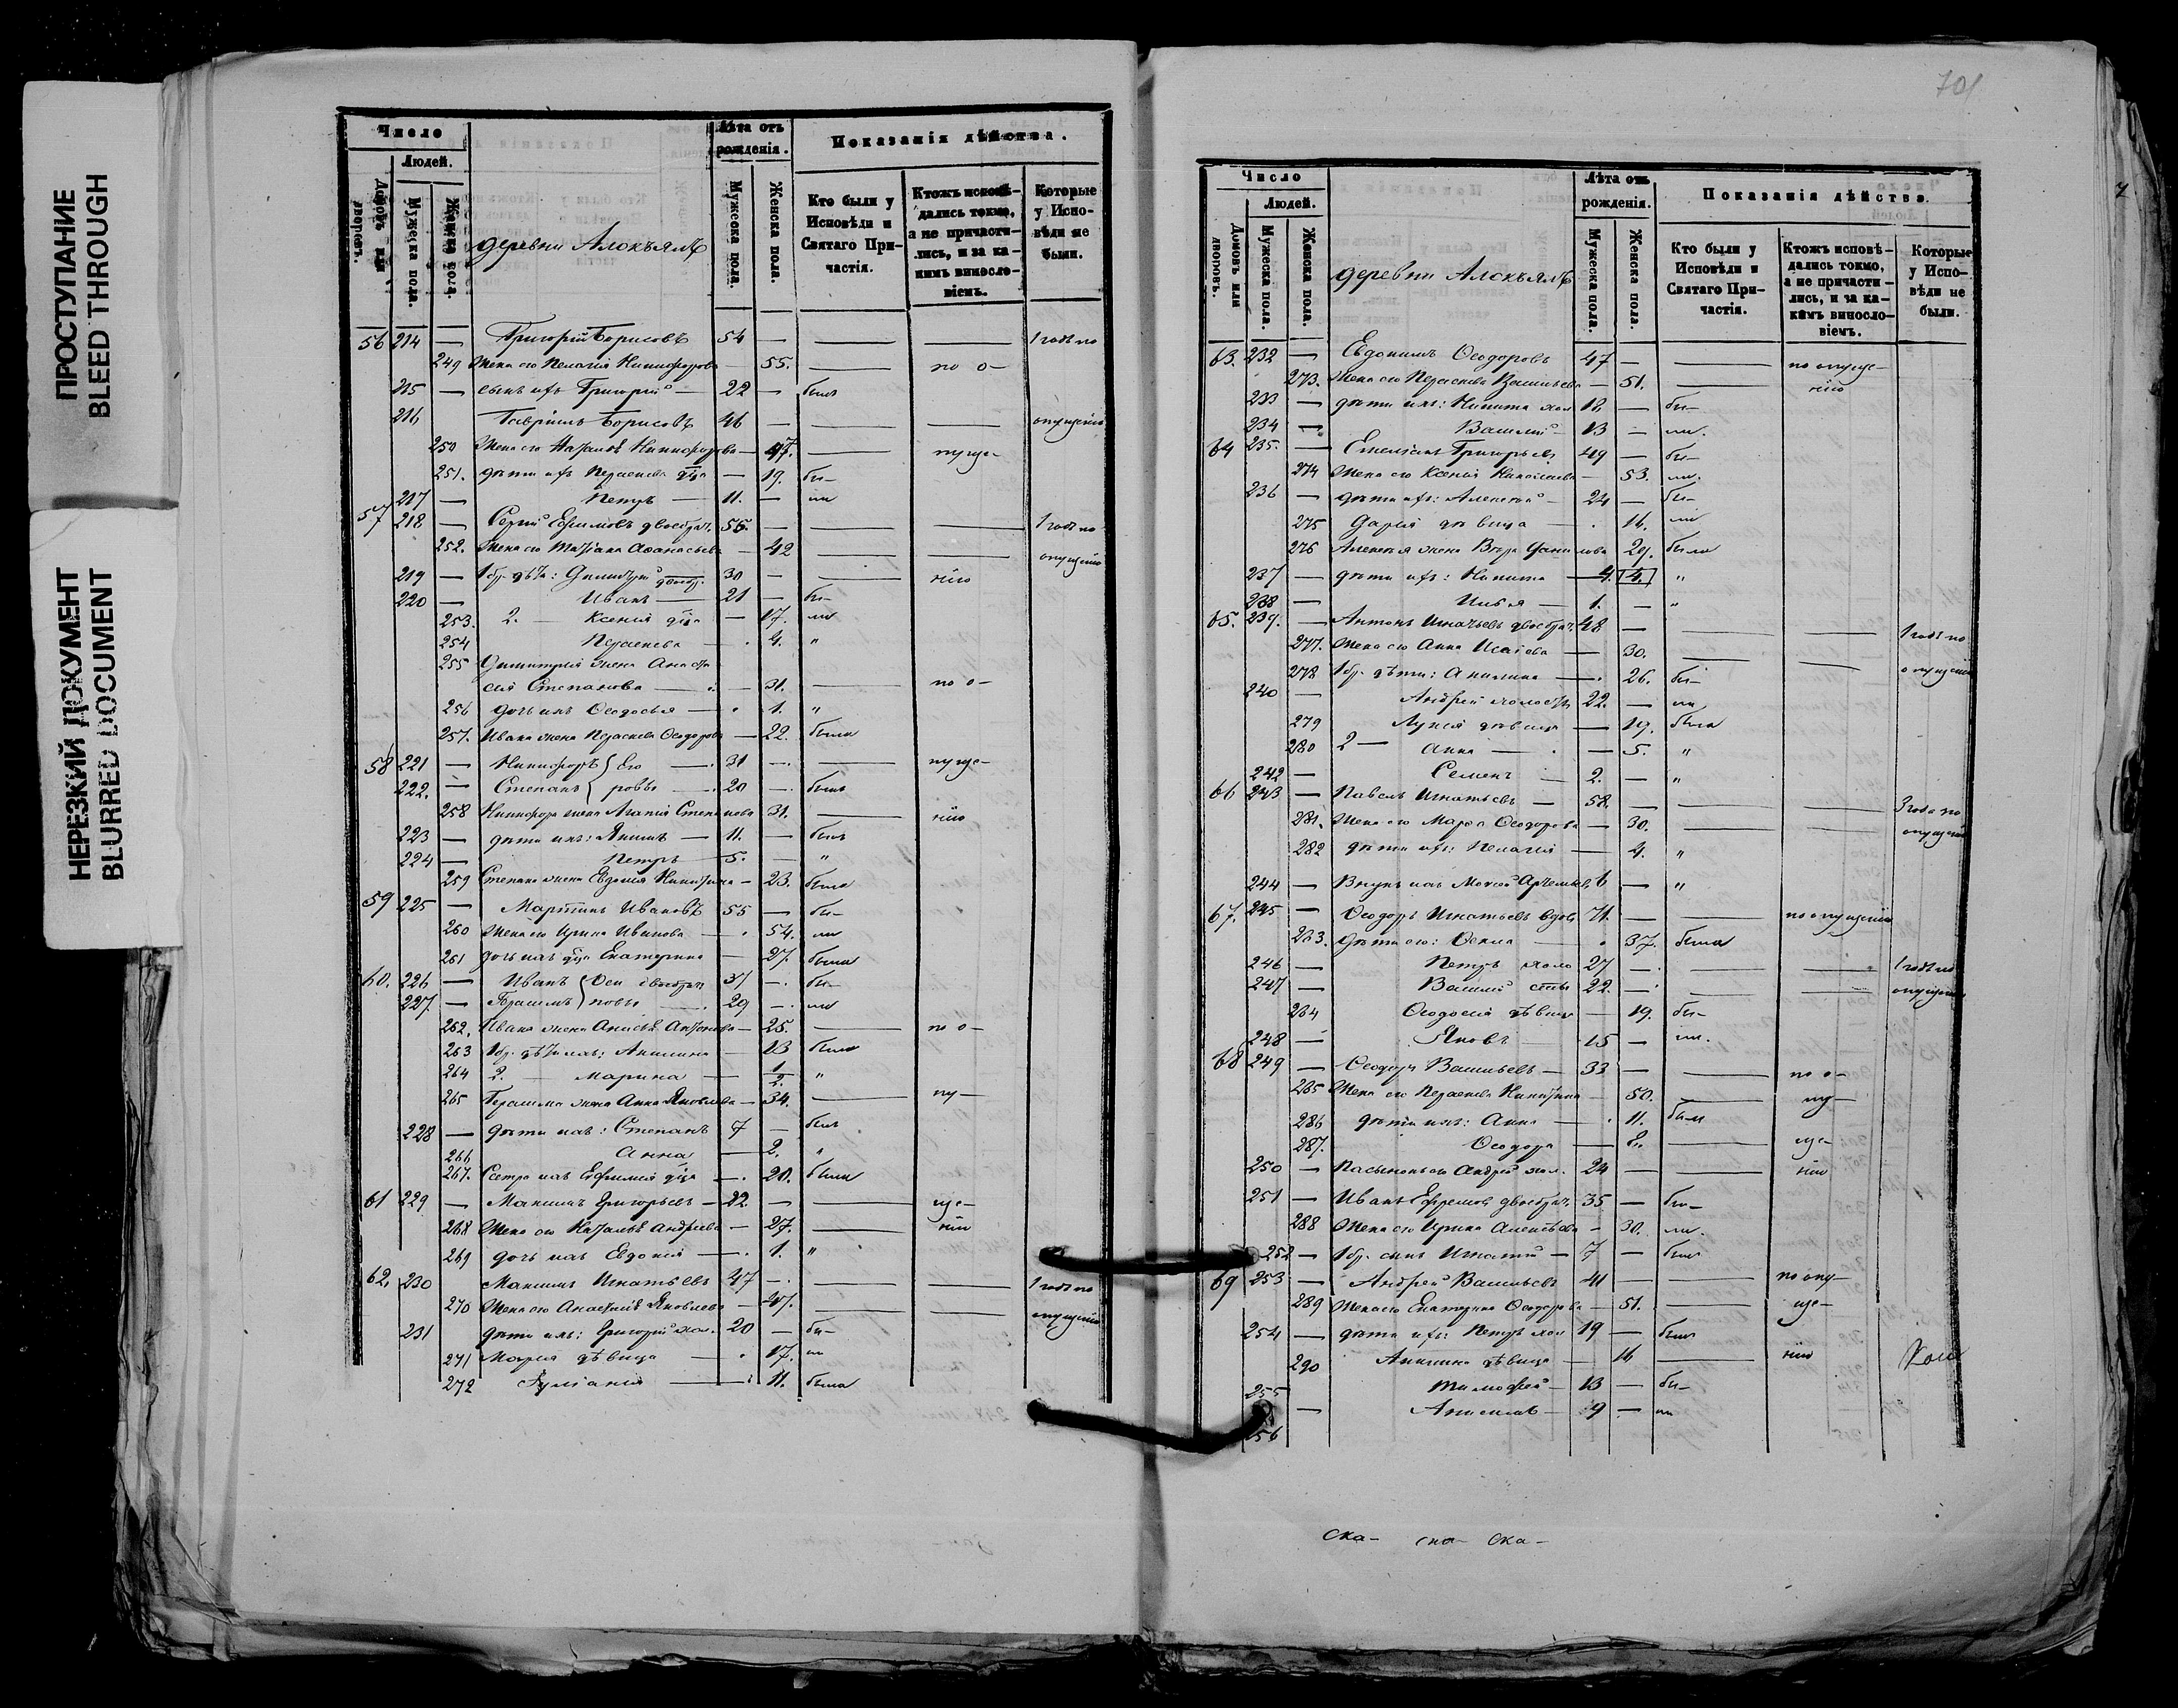 ПРОСТУПАНИЕ
BLEED THROUGH
НЕРЕЗКИЙ ДОКУМЕНТ
BLURRED DOCUMENT
Число
Людей.
Домовъ или дворовъ.
Мужеска пола.
Женска пола.
деревни
Лѣта отъ рожденія.
Мужеска пола.
Женска пола.
Показанія дѣйства.
Кто были у Исповѣди и Святаго Причастія.
Ктожъ исповѣдались токмо, а не причастились, и за какимъ винословіемъ.
Которые у Исповѣди не были.
56 214 — Григорій Борисовъ 54 — — — 1 годъ по
249 Жена его Пелагія Никифорова — 55. — по о—
215 — сынъ ихъ Григорій — 22 — былъ
216 Гавріилъ Борисовъ 46 — — опущенію
250 Жена его Никифорова — 47. — пуще—
251. дѣти ихъ Параскева — 19. бы—
217 — Петръ — 11. — ли
57 218 — Сергій Ефимовъ двоебрач. 56. — — — 1 годъ по
252. Жена его Татіана Аѳанасьева — 42 — — опущенію
219 — 1 бр. дѣти: Димитрій 30 — — нію
220 — Иванъ — 21 — бы—
253. 2. — Ксенія — 17. ли
254 Параскева — 4. "
255 Димитрія жена Анаста
сія Степанова — 31. — по о—
256 дочь ихъ Ѳеодосья — 1. "
257. Ивана жена Параскева Ѳеодорова — 22. была
58 221 — Никифоръ 31 — — пуще—
222. — Степанъ 20 — былъ
258 Никифора жена Агапія Степанова 31. — нію
223 — дѣти ихъ: Якимъ — 11. — былъ
224 — Петръ — 5. — "
259 Степана жена Евдокія Никитина — 23. была
59 225 — Мартинъ Ивановъ 55 — бы—
260 Жена его Ирина Иванова — 54. ли
261 дочь ихъ Екатерина — 27. была
60. 226 — Иванъ 31 — бы—
227. — Герасимъ 29 — ли
262. Ивана жена — 25. — по о—
263 1 бр. дѣти ихъ: Акилина — 13 была
264 2. — Марина — 1/2. "
265 Герасима жена Анна Яковлева — 34. — пу—
228 — дѣти ихъ: Степанъ 7 — былъ
266 Анна — 2. "
267. Сестра ихъ Евфимія — 20. была
61 229 — Максимъ Григорьевъ — 22 — — ще—
268 Жена его Наталья Андреева — 27. — нію
269 дочь ихъ Евдокія — 1. "
62. 230 Максимъ Игнатьевъ 47 — — — 1 годъ по
270 Жена его Яковлева — 47. — — опущенію
231 дѣти ихъ: Григорій хол. 20 — бы—
271 Марія дѣвица — 17. ли
272 Іуліанія — 11. была
701
Число
Людей.
Домовъ или дворовъ.
Мужеска пола.
Женска пола.
деревни
Лѣта отъ рожденія.
Мужеска пола.
Женска пола.
Показанія дѣйства.
Кто были у Исповѣди и Святаго Причастія.
Ктожъ исповѣдались токмо, а не причастились, и за какимъ винословіемъ.
Которые у Исповѣди не были.
63. 232 — Евдокимъ Ѳеодоровъ 47 — — по опуще—
273. Жена его Параскева Васильева — 51. — нію
233 — дѣти ихъ: Никита хол 18 — бы—
234 — Василій — 13 — ли.
64 235. — Емеліанъ Григорьевъ 49 — бы—
274 Жена его Ксенія Николаева — 53. ли.
236 — дѣти ихъ: Алексей — 24 — бы—
275 Дарія дѣвица — 16. ли
276 Алексея жена Вѣра 29. была
237 — дѣти ихъ: Никита — 4. 4. "
238 — Илья — 1. — "
65. 239. — Антонъ Игнатьевъ двоебрач. 48 — — — 1 годъ по
277. Жена его Анна Исаева — 30. — — опущенію
278 1 бр. дѣти: Акилина — 26. бы—
240 — Андрей холостъ 22. — ли
279 Лукія дѣвица — 19. была
280 2 — Анна — 5. "
242 — Семенъ — 2. — "
66 243 — Павелъ Игнатьевъ — 58. — — — 3 года по
281. Жена его Марѳа Ѳеодорова — 30. — — опущенію
282 дѣти ихъ: Пелагія — 4. "
244 — Внукъ ихъ Моисей Артемьевъ 6 — "
67. 245 — Ѳеодоръ Игнатьевъ вдовъ 71. — — по опущенію
283. дѣти его: Ѳекла — 37. была
246 — Петръ холо 27 — — — 1 годъ по
247 — Василій 22. — — — опущенію
284 Ѳеодосія дѣвица — 19. бы—
248 — Яковъ 15 — ли.
68 249 — Ѳеодоръ Васильевъ — 33 — — по о—
285 Жена его Параскева Никитина — 50. — пу—
286 дѣти ихъ: Анна — 11. была
287. Ѳеодора — 8. — ще—
250 — Пасынокъ его Андрей хол. 24 — — нію
251 — Иванъ Ефремовъ двоебрач. 35 — бы—
288 Жена его Ирина Алексѣева — 30. ли.
252 — 1 бр. сынъ Игнатій — 7 — былъ
69 253 — Андрей Васильевъ 41 — — по опу—
289 Жена его Екатерина Ѳеодорова — 51. — ще—
254 — дѣти ихъ: Петръ хол 19 — былъ
290 Акилина дѣвица — 16 — нію
255 Тимоѳей — 13 — бы—
— 9 — ли
256
ска— ска— ска—